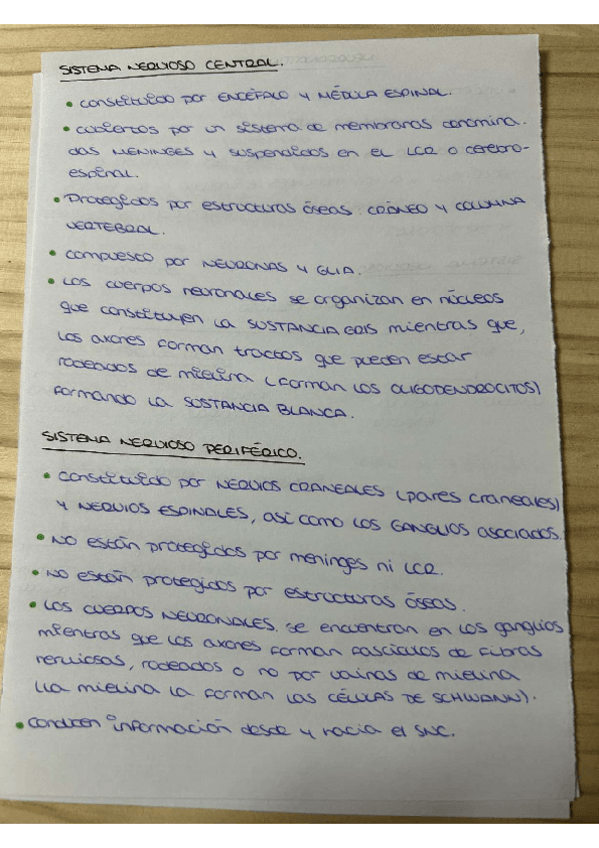 SISTEMA NERVIOSO CENTRAL.
• constituido por ENCÉFALO Y MÉDULA ESPINAL.
• cubiertos por un sistema de membranas denomina-
das MENINGES y suspendidos en el LCR o cerebro-
espinal.
• Protegidos por estructuras óseas: CRÁNEO Y COLUMNA
VERTEBRAL.
• compuesto por NEURONAS Y GLIA.
• Los cuerpos neuronales se organizan en núcleos
que constituyen la SUSTANCIA GRIS mientras que,
los axones forman tractos que pueden estar
rodeados de mielina (forman los OLIGODENDROCITOS)
formando la SUSTANCIA BLANCA.
SISTEMA NERVIOSO PERIFÉRICO.
• constituido por NERVIOS CRANEALES (pares craneales)
Y NERVIOS ESPINALES, así como los GANGLIOS asociados.
• No están protegidos por meninges ni LCR.
• No están protegidos por estructuras óseas.
• Los CUERPOS NEURONALES se encuentran en los ganglios
mientras que los axones forman fascículos de fibras
nerviosas, rodeados o no por vainas de mielina
(la mielina la forman las CÉLULAS DE SCHWANN).
• conducen información desde y hacia el SNC.